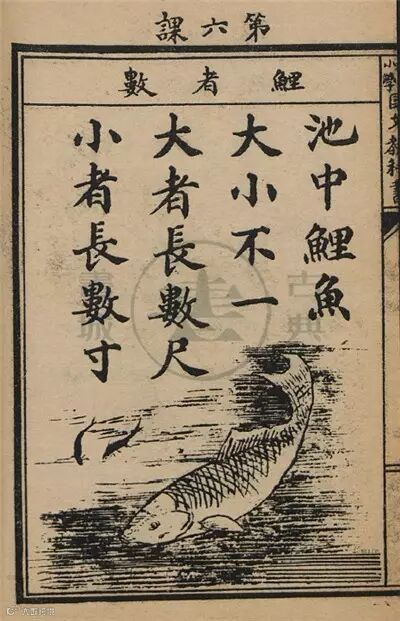 第六課
小學國文教科書
鯉者數
池中鯉魚
大小不一
大者長數尺
小者長數寸
古典
書城